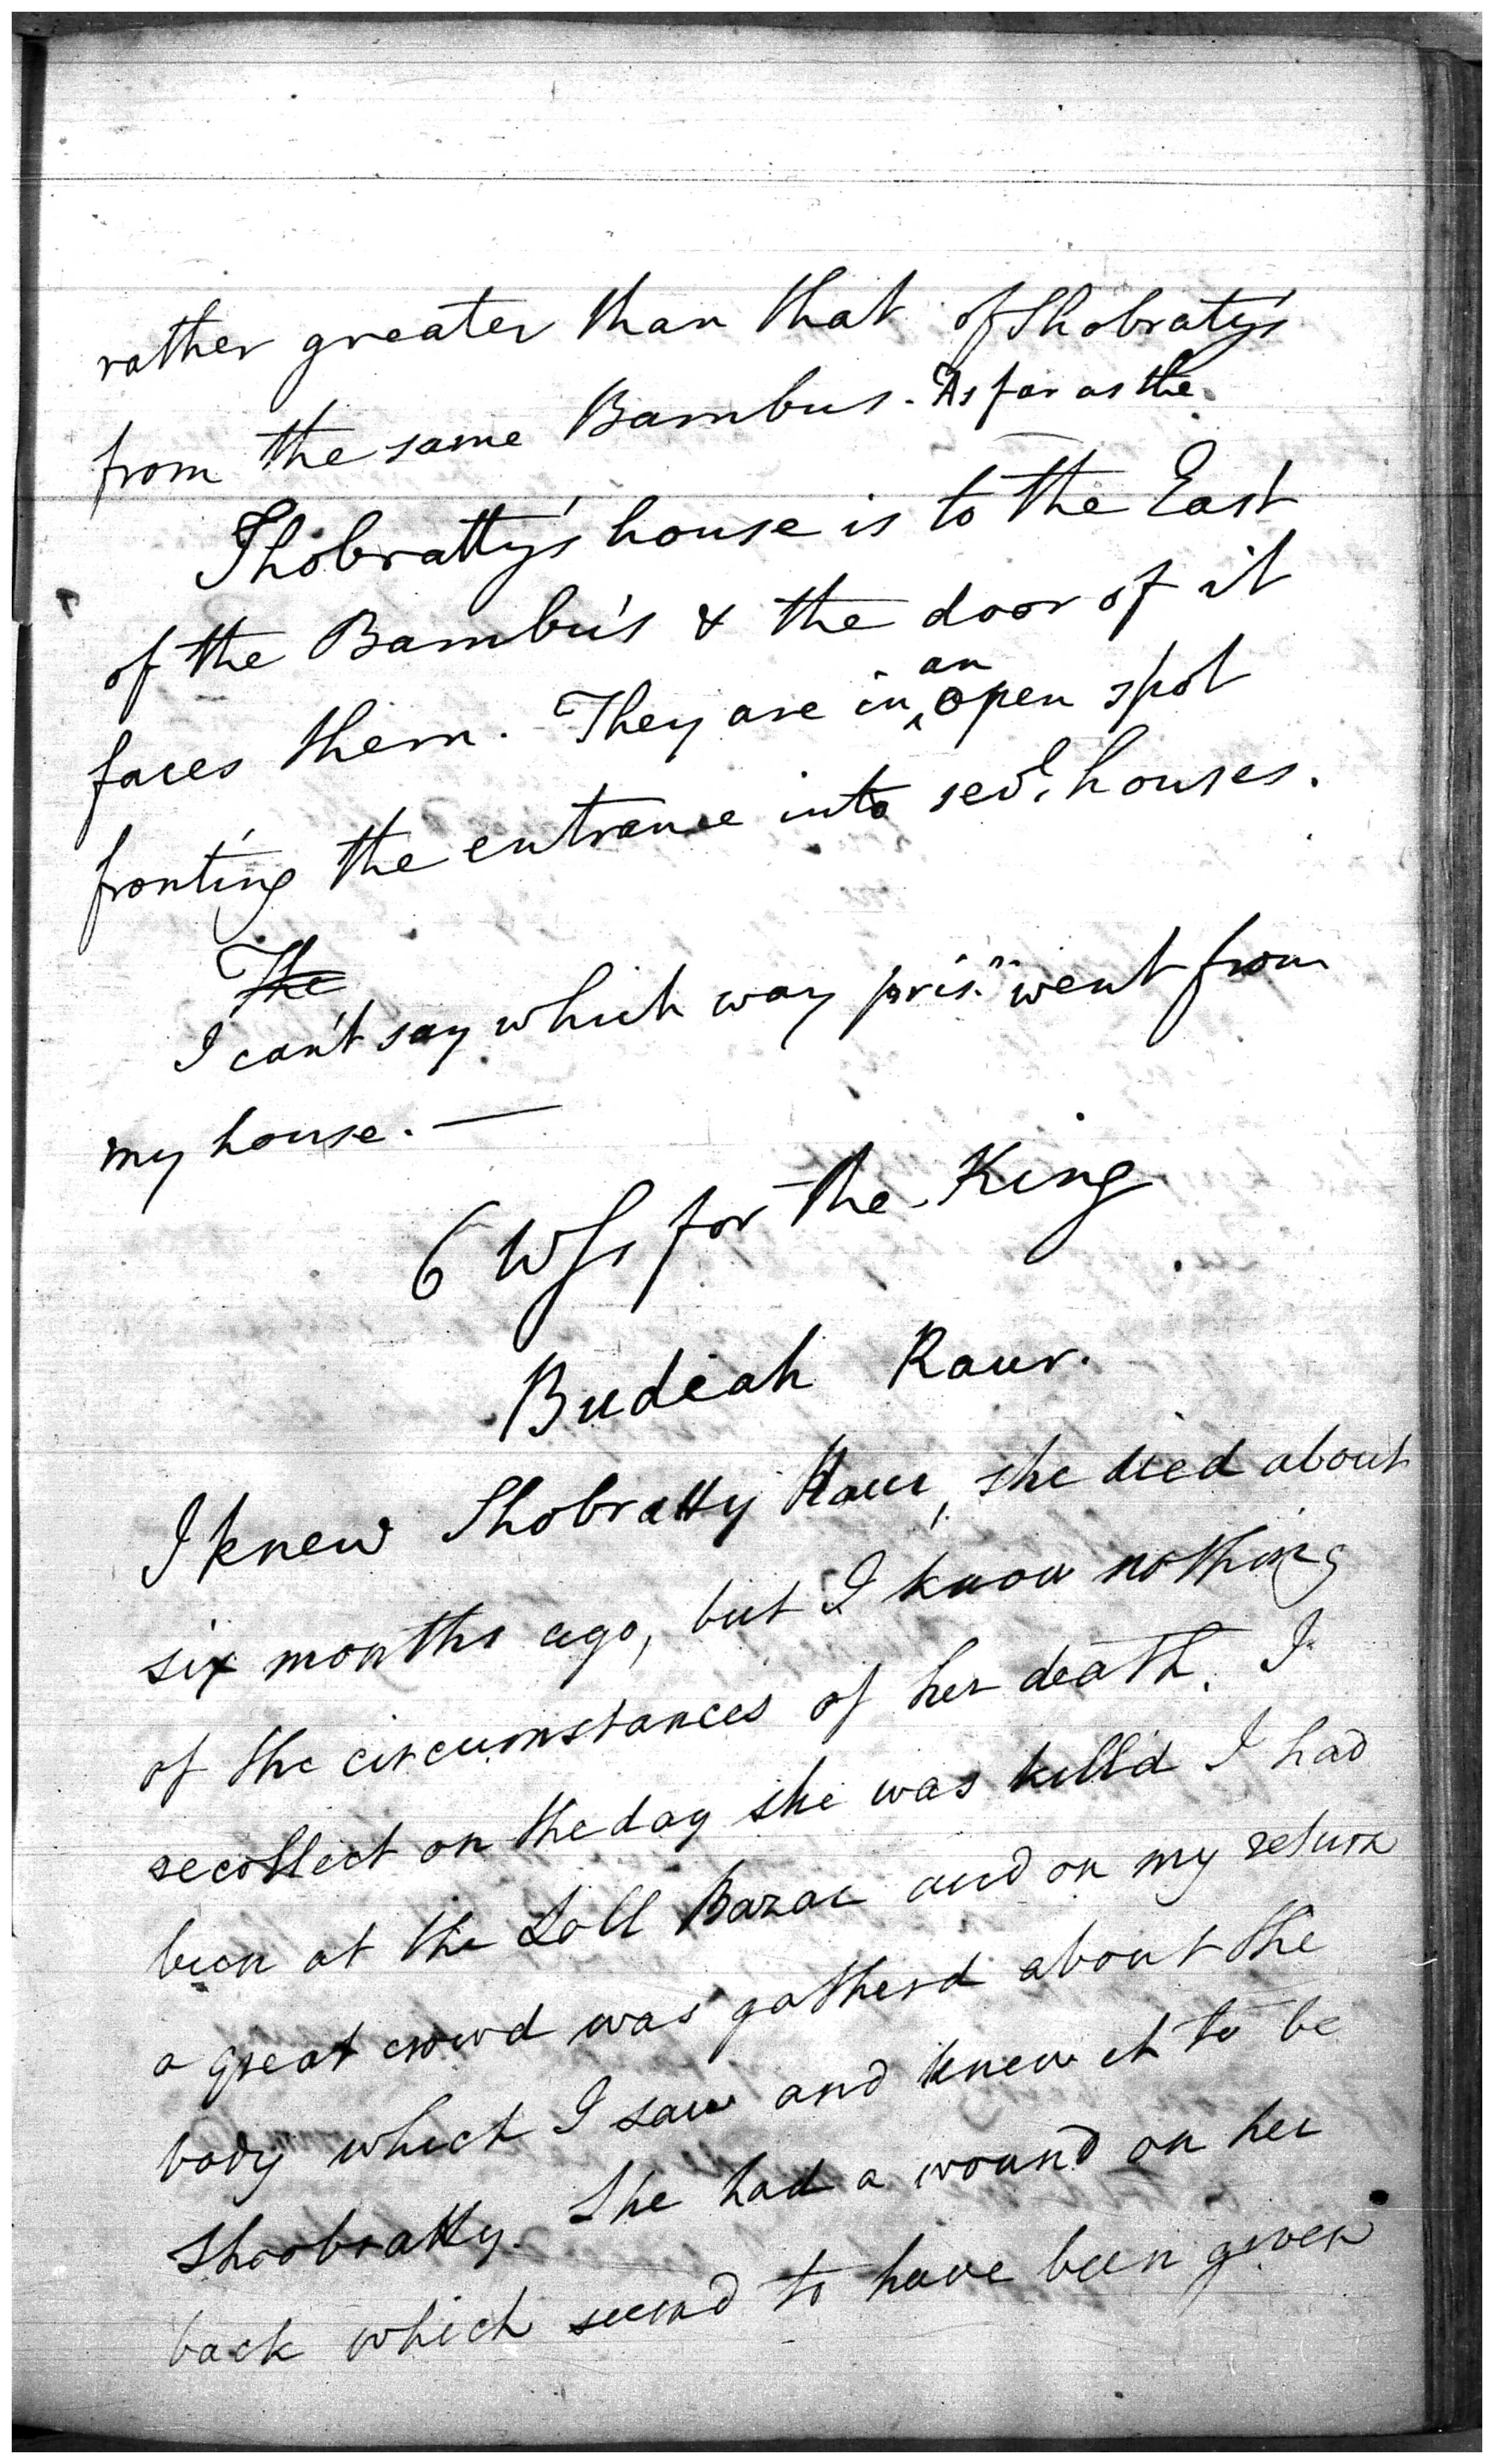 rather greater than that of Shobraty's
from the same Bambus. As far as the
Shobratty's house is to the East
of the Bambu's & the door of it
faces them. They are in an open spot
fronting the entrance into sevl. houses.
The
I can't say which way prisr. went from
my house. —
6 Wss for the King
Budeah Raur.
I knew Shobratty Raur, she died about
six months ago, but I know nothing
of the circumstances of her death. I
recollect on the day she was killd I had
been at the Loll Bazar and on my return
a great crowd was gatherd about the
body which I saw and knew it to be
Shoobratty. She had a wound on her
back which seemd to have been given